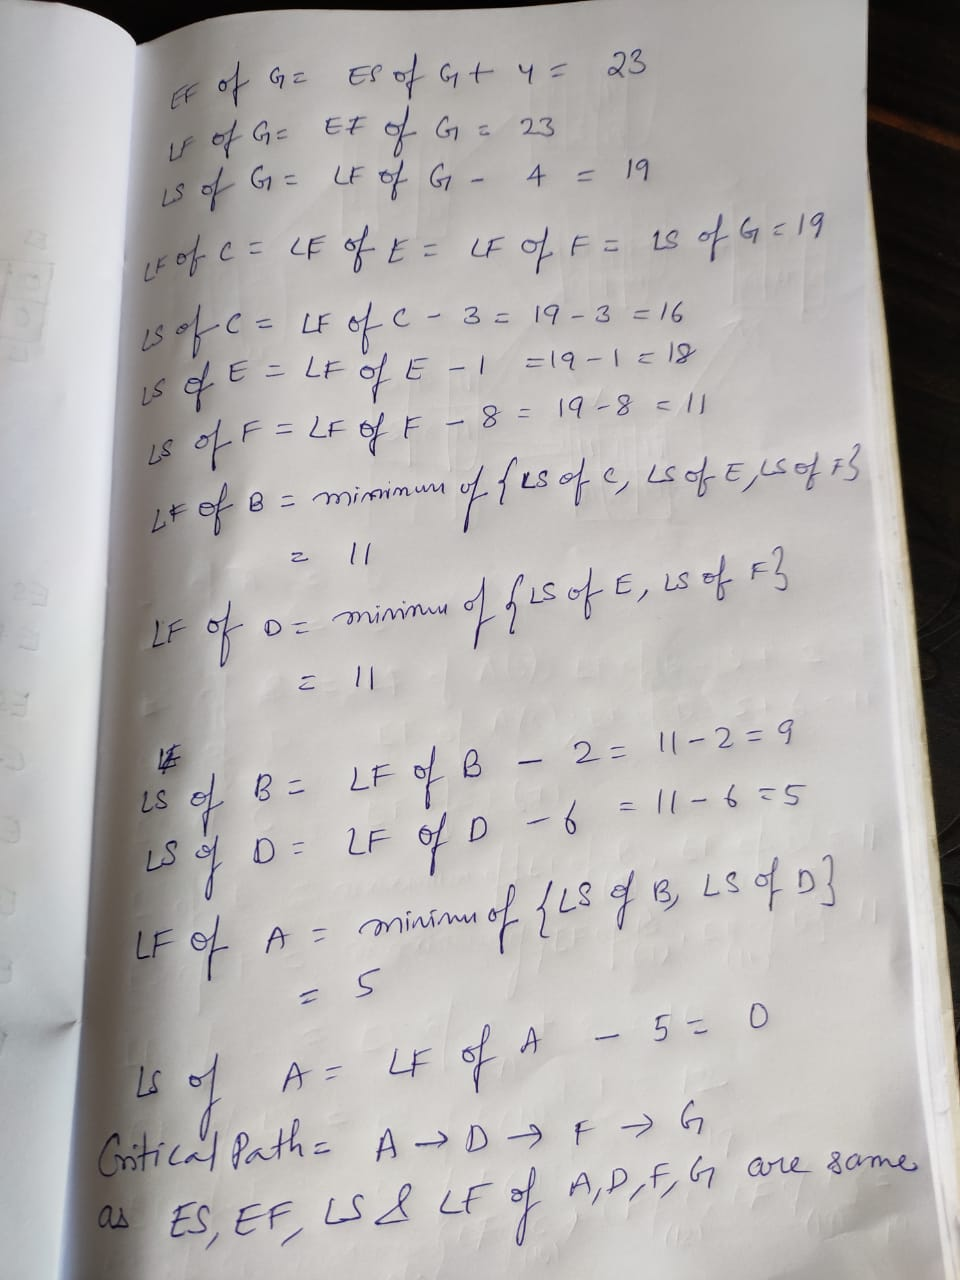 EF of G = ES of G + 4 = 23
LF of G = EF of G = 23
LS of G = LF of G - 4 = 19
LF of C = LF of E = LF of F = LS of G = 19
LS of C = LF of C - 3 = 19 - 3 = 16
LS of E = LF of E - 1 = 19 - 1 = 18
LS of F = LF of F - 8 = 19 - 8 = 11
LF of B = minimum of {LS of C, LS of E, LS of F}
= 11
LF of D = minimum of {LS of E, LS of F}
= 11
LS of B = LF of B - 2 = 11 - 2 = 9
LS of D = LF of D - 6 = 11 - 6 = 5
LF of A = minimum of {LS of B, LS of D}
= 5
LS of A = LF of A - 5 = 0
Critical Path = A → D → F → G
as ES, EF, LS & LF of A, D, F, G are same